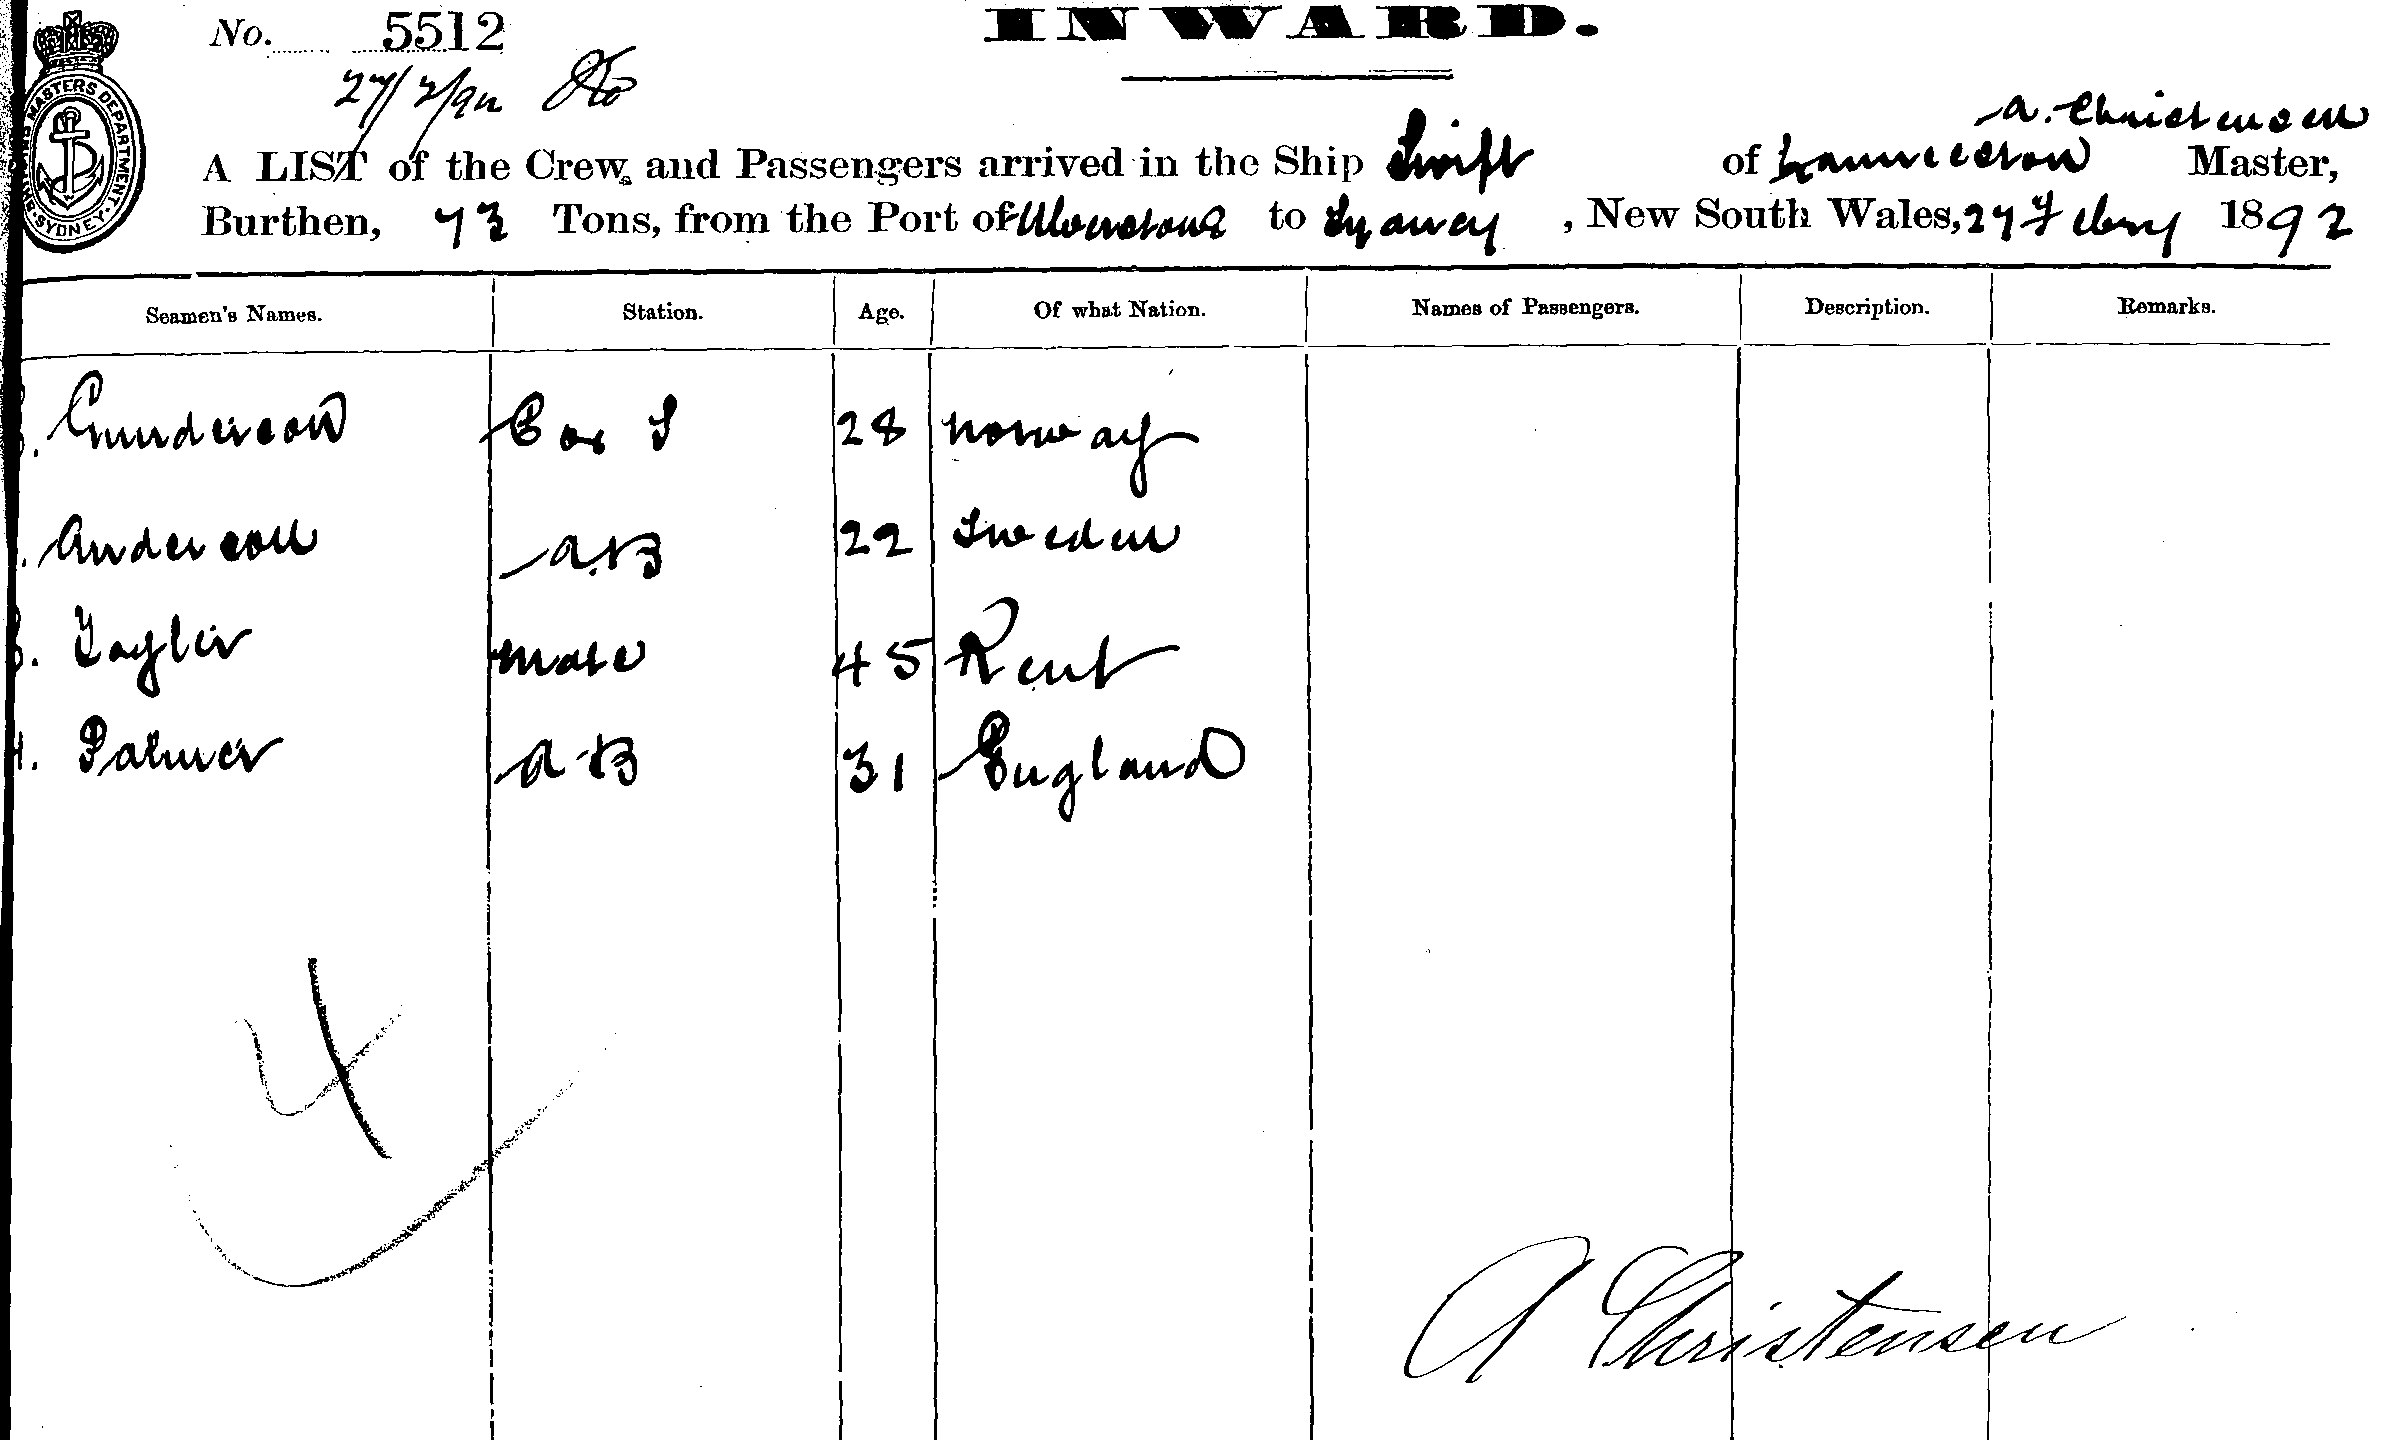 INWARD.
No. 5512
27/2/92
SHIPPING MASTERS DEPARTMENT. SYDNEY.
A. Christensen
A LIST of the Crew and Passengers arrived in the Ship Swift of Launceston Master,
Burthen, 73 Tons, from the Port of Ulverstone to Sydney, New South Wales, 27 Febry 1892
Seamen's Names. Station. Age. Of what Nation. Names of Passengers. Description. Remarks.
Gunderson 28 Norway
Anderson A.B 22 Sweden
Taylor Mate 45 Kent
Palmer A B 31 England
4
A Christensen